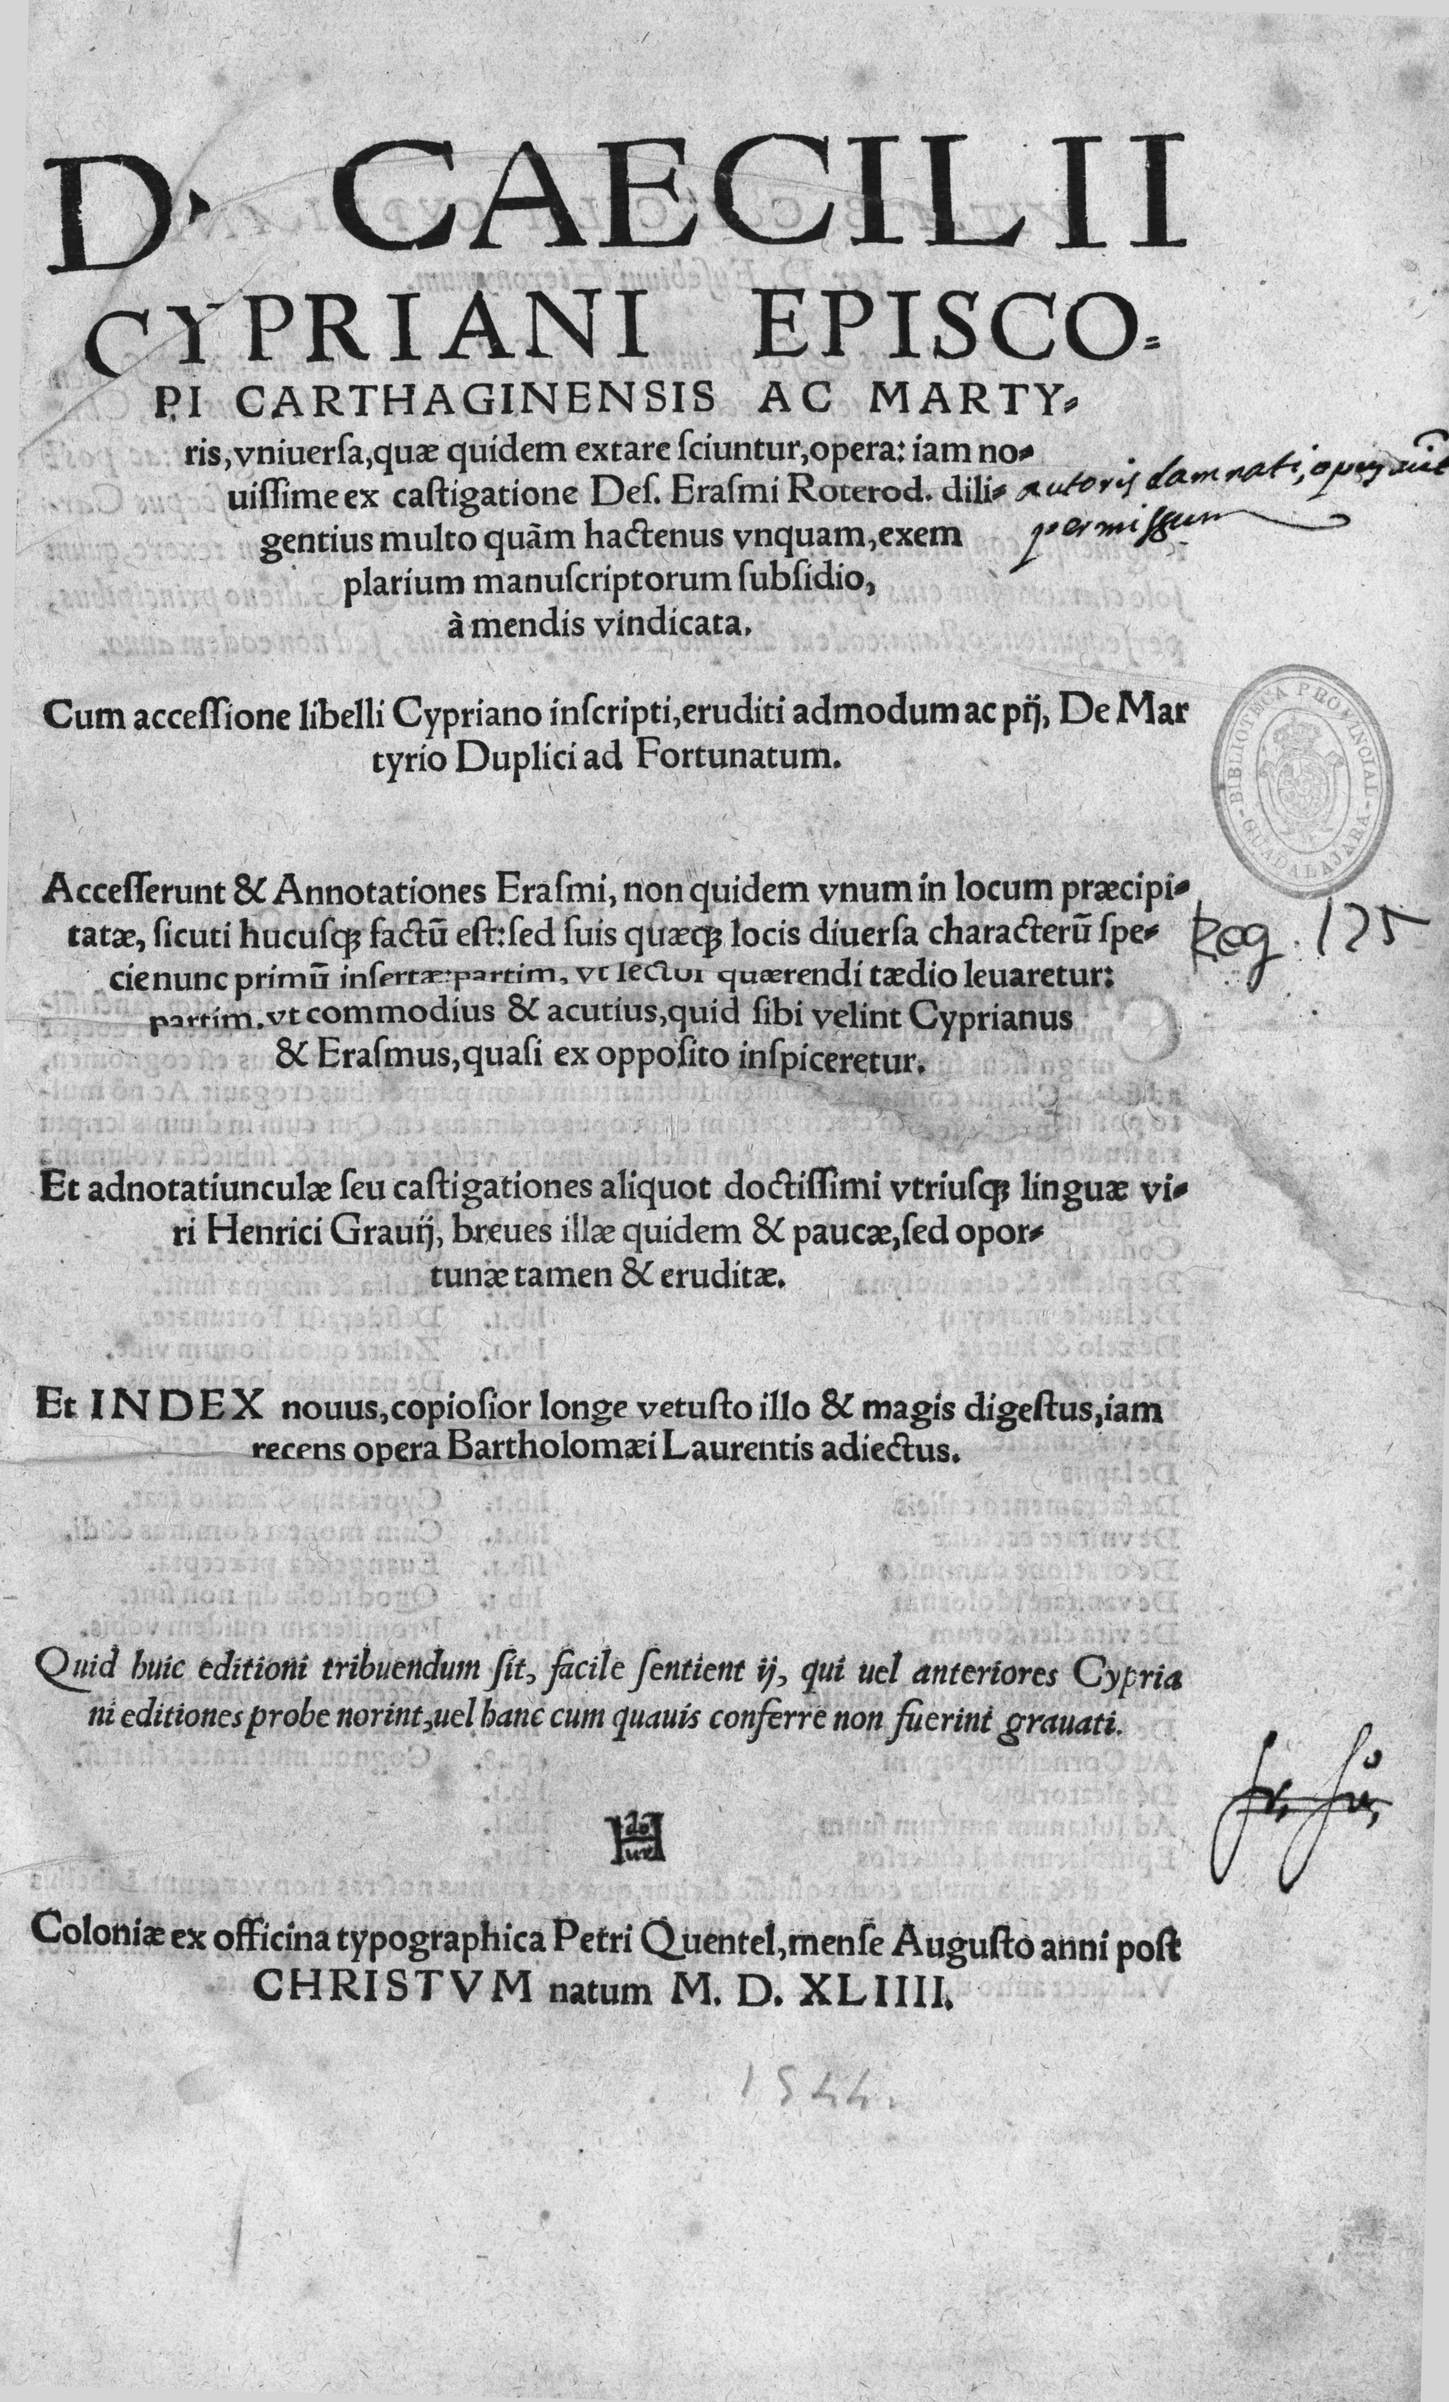 D. CAECILII
CYPRIANI EPISCO⸗
PI CARTHAGINENSIS AC MARTY⸗
ris, vniuerſa, quæ quidem extare ſciuntur, opera: iam no⸗
uiſſime ex caſtigatione Deſ. Eraſmi Roterod. dili⸗
autoris damnati, opus
permissum
gentius multo quàm hactenus vnquam, exem
plarium manuſcriptorum ſubſidio,
à mendis vindicata.
Cum acceſſione libelli Cypriano inſcripti, eruditi admodum ac pij, De Mar
tyrio Duplici ad Fortunatum.
BIBLIOTECA PROVINCIAL
GUADALAJARA
Acceſſerunt & Annotationes Eraſmi, non quidem vnum in locum præcipi⸗
tatæ, ſicuti hucuſꝗ factū eſt: ſed ſuis quæꝗ locis diuerſa characterū ſpe⸗
Reg. 125
cie nunc primū inſertæ: partim, vt lector quærendi tædio leuaretur:
partim, vt commodius & acutius, quid ſibi velint Cyprianus
& Eraſmus, quaſi ex oppoſito inſpiceretur.
Et adnotatiunculæ ſeu caſtigationes aliquot doctiſſimi vtriuſꝗ linguæ vi⸗
ri Henrici Grauij, breues illæ quidem & paucæ, ſed opor⸗
tunæ tamen & eruditæ.
Et INDEX nouus, copioſior longe vetuſto illo & magis digeſtus, iam
recens opera Bartholomæi Laurentis adiectus.
Quid huic editioni tribuendum ſit, facile ſentient ij, qui uel anteriores Cypria
ni editiones probe norint, uel hanc cum quauis conferre non fuerint grauati.
Coloniæ ex officina typographica Petri Quentel, menſe Auguſto anni poſt
CHRISTVM natum M. D. XLIIII.
1544.